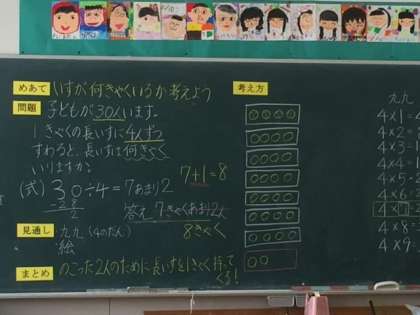 めあて いすが何きゃくいるか考えよう
問題 子どもが30人います。
1きゃくの長いすに4人ずつ
すわると、長いすは何きゃく
いりますか。
(式) 30÷4=7あまり2
-28
2
答え 7きゃくあまり2人
7+1=8
8きゃく
見通し 九九(4のだん)
絵
まとめ のこった2人のために長いすを1きゃく持って
くる!
考え方
九九
4×1=4
4×2=
4×3=1
4×4=1
4×5=2
4×6=
4×7=2
4×8=
4×9=